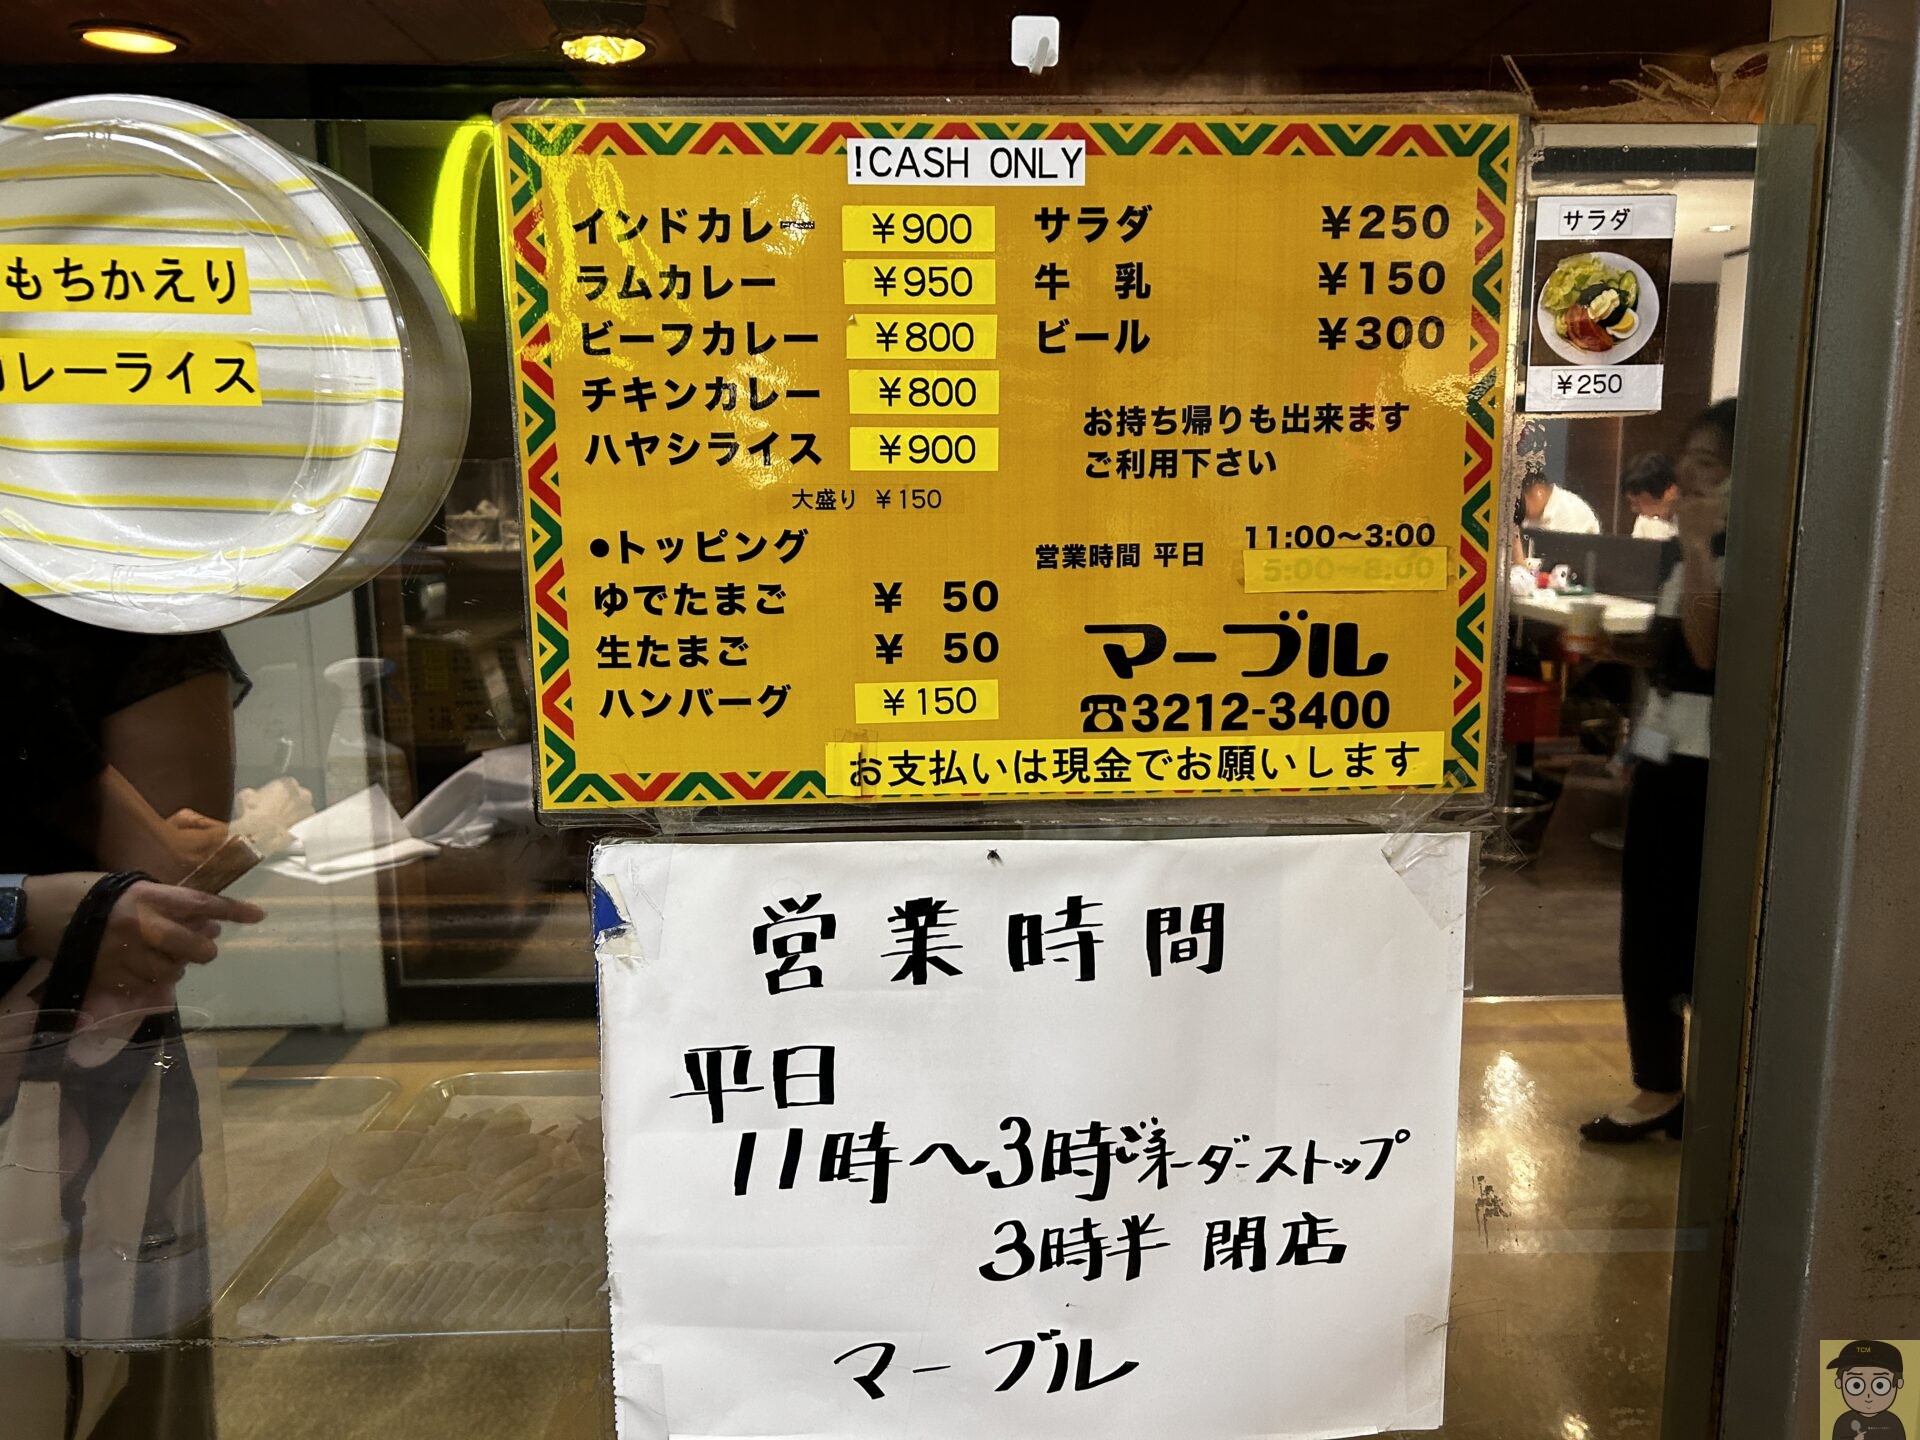 もちかえり
カレーライス
!CASH ONLY
インドカレー ¥900
ラムカレー ¥950
ビーフカレー ¥800
チキンカレー ¥800
ハヤシライス ¥900
大盛り ¥150
●トッピング
ゆでたまご ¥ 50
生たまご ¥ 50
ハンバーグ ¥150
サラダ ¥250
牛 乳 ¥150
ビール ¥300
お持ち帰りも出来ます
ご利用下さい
営業時間 平日 11:00〜3:00
5:00〜8:00
マーブル
☎3212-3400
お支払いは現金でお願いします
サラダ
¥250
営業時間
平日
11時〜3時オーダーストップ
3時半 閉店
マーブル
TCM